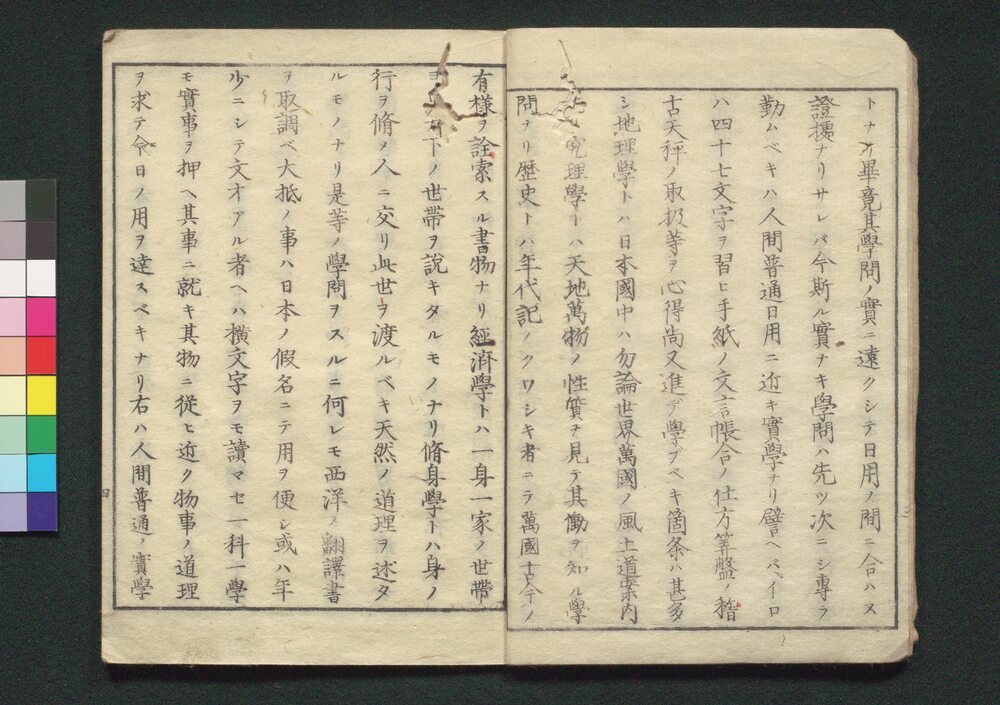 トナリ畢竟其學問ノ實ニ遠クシテ日用ノ間ニ合ハヌ
證據ナリサレバ今斯ル實ナキ學問ハ先ツ次ニシ專ラ
勤ムベキハ人間普通日用ニ近キ實學ナリ譬ヘバイロ
ハ四十七文字ヲ習ヒ手紙ノ文言帳合ノ仕方算盤ノ稽
古天秤ノ取扱等ヲ心得尚又進デ學ブベキ箇条ハ甚多
シ地理學トハ日本國中ハ勿論世界萬國ノ風土道案内
究理學トハ天地萬物ノ性質ヲ見テ其働ヲ知ル學
問ナリ歴史トハ年代記ノクワシキ者ニテ萬國古今ノ
有樣ヲ詮索スル書物ナリ經濟學トハ一身一家ノ世帶
下ノ世帶ヲ說キタルモノナリ脩身學トハ身ノ
行ヲ脩メ人ニ交リ此世ヲ渡ルベキ天然ノ道理ヲ述タ
ルモノナリ是等ノ學問ヲスルニ何レモ西洋ノ翻譯書
ヲ取調ベ大抵ノ事ハ日本ノ假名ニテ用ヲ便シ或ハ年
少ニシテ文才アル者ヘハ橫文字ヲモ讀マセ一科一學
モ實事ヲ押ヘ其事ニ就キ其物ニ從ヒ近ク物事ノ道理
ヲ求テ今日ノ用ヲ達スベキナリ右ハ人間普通ノ實學
四